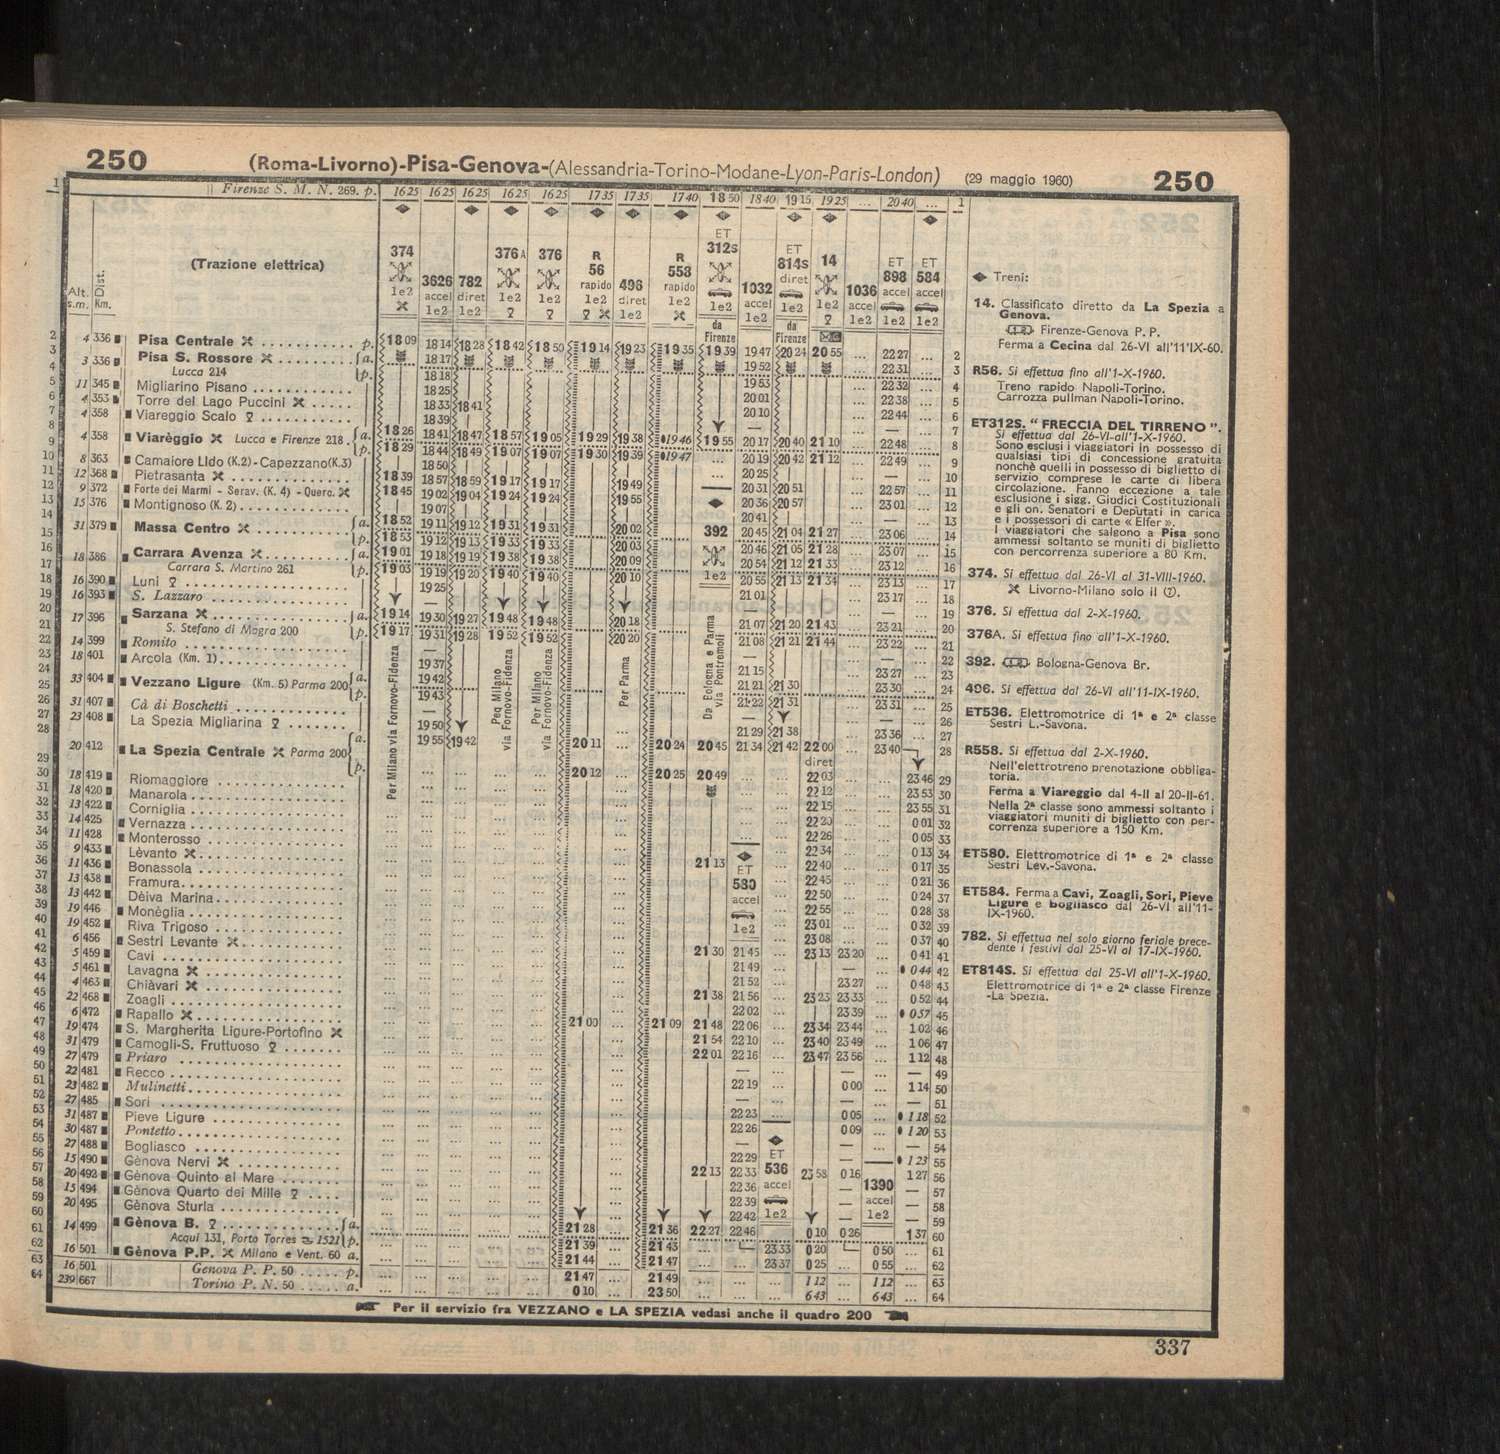 250 (Roma-Livorno)-Pisa-Genova-(Alessandria-Torino-Modane-Lyon-Paris-London) (29 maggio 1960) 250
1 Firenze S. M. N. 269. p. 16 25 16 25 16 25 16 25 16 25 17 35 17 35 17 40 18 50 18 40 19 15 19 25 ... 20 40 ... 1
Alt. s.m. Dist. Km. (Trazione elettrica)
374 1e2
3626 accel 1e2
782 diret 1e2
376A 1e2
376 1e2
R 56 rapido 1e2
496 diret 1e2
R 558 rapido 1e2
ET 312S 1e2 da Firenze
1032 accel 1e2
ET 814S diret 1e2 da Firenze
14 1e2
1036 accel 1e2
ET 898 accel 1e2
ET 584 accel 1e2
4 336 Pisa Centrale p. 18 09 18 14 18 28 18 42 18 50 19 14 19 23 19 35 19 39 19 47 20 24 20 55 ... 22 27 ... 2
3 336 Pisa S. Rossore a. 18 17 19 52 22 31 ... 3
Lucca 214 p. 18 18 19 53 22 32 ... 4
11 345 Migliarino Pisano 18 25 20 01 22 38 ... 5
4 353 Torre del Lago Puccini 18 33 18 41 20 10 22 44 ... 6
4 358 Viareggio Scalo 18 39 — — 7
4 358 Viarèggio Lucca e Firenze 218 a. 18 26 18 41 18 47 18 57 19 05 19 29 19 38 19 46 19 55 20 17 20 40 21 10 ... 22 48 ... 8
p. 18 29 18 44 18 49 19 07 19 07 19 30 19 39 19 47 ... 20 19 20 42 21 12 ... 22 49 ... 9
8 363 Camaiore Lido (K.2)-Capezzano(K.3) 18 50 20 25 — 10
12 368 Pietrasanta 18 39 18 57 18 59 19 17 19 17 19 49 20 31 20 51 22 57 ... 11
9 372 Forte dei Marmi - Serav. (K. 4) - Querc. 18 45 19 02 19 04 19 24 19 24 19 55 20 36 20 57 23 01 ... 12
15 376 Montignoso (K. 2) 19 07 20 41 — 13
31 379 Massa Centro a. 18 52 19 11 19 12 19 31 19 31 20 02 392 20 45 21 04 21 27 23 06 ... 14
p. 18 53 19 12 19 13 19 33 19 33 20 03 20 46 21 05 21 28 23 07 ... 15
18 386 Carrara Avenza a. 19 01 19 18 19 19 19 38 19 38 20 09 20 54 21 12 21 33 23 12 ... 16
Carrara S. Martino 261 p. 19 03 19 19 19 20 19 40 19 40 20 10 1e2 20 55 21 13 21 34 23 13 ... 17
16 390 Luni 19 25 21 01 23 17 ... 18
16 393 S. Lazzaro — — — ... 19
17 396 Sarzana a. 19 14 19 30 19 27 19 48 19 48 20 18 21 07 21 20 21 43 23 21 ... 20
S. Stefano di Magra 200 p. 19 17 19 31 19 28 19 52 19 52 20 20 21 08 21 21 21 44 23 22 ... 21
14 399 Romito — — — ... 22
18 401 Arcola (Km. 1) 19 37 21 15 23 27 ... 23
33 404 Vezzano Ligure (Km. 5) Parma 200 a. 19 42 21 21 21 30 23 30 ... 24
p. 19 43 21 22 21 31 23 31 ... 25
31 407 Cà di Boschetti — — — ... 26
23 408 La Spezia Migliarina 19 50 21 29 21 38 23 36 ... 27
20 412 La Spezia Centrale Parma 200 a. 19 55 19 42 20 11 ... 20 24 20 45 21 34 21 42 22 00 23 40 28
Per Milano via Fornovo-Fidenza
Peq Milano via Fornovo-Fidenza
Per Milano via Fornovo-Fidenza
Per Parma
Da Bologna e Parma via Pontremoli
diret
p. 20 12 ... 20 25 20 49 22 03 23 46 29
18 419 Riomaggiore 22 12 23 53 30
18 420 Manarola 22 15 23 55 31
13 422 Corniglia 22 20 0 01 32
14 425 Vernazza 22 26 0 05 33
11 428 Monterosso 22 34 0 13 34
9 433 Lèvanto 21 13 22 40 0 17 35
11 436 Bonassola ET 22 45 0 21 36
13 438 Framura 580 22 50 0 24 37
13 442 Dèiva Marina accel 22 55 0 28 38
19 446 Monèglia 23 01 0 32 39
19 452 Riva Trigoso 1e2 23 08 0 37 40
6 456 Sestri Levante 21 30 21 45 23 13 23 20 0 41 41
5 459 Cavi 21 49 — 0 44 42
5 461 Lavagna 21 52 23 27 0 48 43
4 463 Chiàvari 21 38 21 56 23 23 23 33 0 52 44
22 468 Zoagli 22 02 23 39 0 57 45
6 472 Rapallo 21 00 21 09 21 48 22 06 23 34 23 44 1 02 46
19 474 S. Margherita Ligure-Portofino 21 54 22 10 23 40 23 49 1 06 47
31 479 Camogli-S. Fruttuoso 22 01 22 16 23 47 23 56 1 12 48
27 479 Priaro — — — 49
22 481 Recco 22 19 0 00 1 14 50
23 482 Mulinetti — — — 51
27 485 Sori 22 23 0 05 1 18 52
31 487 Pieve Ligure 22 26 0 09 1 20 53
30 487 Pontetto — — — 54
27 488 Bogliasco 22 29 ET — 1 23 55
15 490 Gènova Nervi 22 13 22 33 536 23 58 0 16 1 27 56
20 492 Gènova Quinto al Mare 22 36 accel — 1390 — 57
15 494 Gènova Quarto dei Mille 22 39 — accel — 58
20 495 Gènova Sturla 22 42 1e2 — 1e2 — 59
14 499 Gènova B. a. 21 28 21 36 22 27 22 46 0 10 0 26 1 37 60
Acqui 131, Porto Torres 1521 p. 21 39 21 43 ... 23 33 0 20 0 50 ... 61
16 501 Gènova P.P. Milano e Vent. 60 a. 21 44 21 47 ... 23 37 0 25 ... 0 55 ... 62
16 501 Genova P. P. 50 p. 21 47 21 49 ... 1 12 ... 1 12 ... 63
239 667 Torino P. N. 50 a. 0 10 23 50 ... 6 43 ... 6 43 ... 64
Per il servizio fra VEZZANO e LA SPEZIA vedasi anche il quadro 200
Treni:
14. Classificato diretto da La Spezia a
Genova.
Firenze-Genova P. P.
Ferma a Cecina dal 26-VI all'11'IX-60.
R56. Si effettua fino all'1-X-1960.
Treno rapido Napoli-Torino.
Carrozza pullman Napoli-Torino.
ET312S. "FRECCIA DEL TIRRENO".
Si effettua dal 26-VI-all'1-X-1960.
Sono esclusi i viaggiatori in possesso di
qualsiasi tipo di concessione gratuita
nonchè quelli in possesso di biglietto di
servizio comprese le carte di libera
circolazione. Fanno eccezione a tale
esclusione i sigg. Giudici Costituzionali
e gli on. Senatori e Deputati in carica
e i possessori di carte « Elfer ».
I viaggiatori che salgono a Pisa sono
ammessi soltanto se muniti di biglietto
con percorrenza superiore a 80 Km.
374. Si effettua dal 26-VI al 31-VIII-1960.
Livorno-Milano solo il (7).
376. Si effettua dal 2-X-1960.
376A. Si effettua fino all'1-X-1960.
392. Bologna-Genova Br.
496. Si effettua dal 26-VI all'11-IX-1960.
ET536. Elettromotrice di 1ª e 2ª classe
Sestri L.-Savona.
R558. Si effettua dal 2-X-1960.
Nell'elettrotreno prenotazione obbliga-
toria.
Ferma a Viareggio dal 4-II al 20-II-61.
Nella 2ª classe sono ammessi soltanto i
viaggiatori muniti di biglietto con per-
correnza superiore a 150 Km.
ET580. Elettromotrice di 1ª e 2ª classe
Sestri Lev.-Savona.
ET584. Ferma a Cavi, Zoagli, Sori, Pieve
Ligure e Bogliasco dal 26-VI all'11-
IX-1960.
782. Si effettua nel solo giorno feriale prece-
dente i festivi dal 25-VI al 17-IX-1960.
ET814S. Si effettua dal 25-VI all'1-X-1960.
Elettromotrice di 1ª e 2ª classe Firenze
-La Spezia.
337